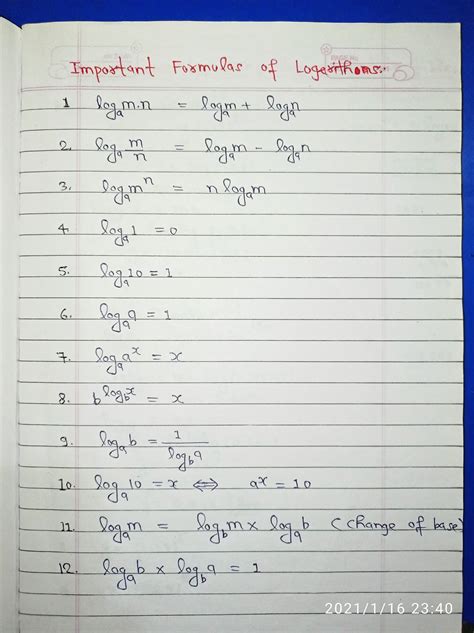 Important Formulas of Logerithoms:
1 logₐm.n = logₐm + logₐn
2. logₐ m/n = logₐm - logₐn
3. logₐmⁿ = n logₐm
4. logₐ1 = 0
5. logₐ10 = 1
6. logₐa = 1
7. logₐaˣ = x
8. b^(log_b x) = x
9. logₐb = 1/log_b a
10. logₐ10 = x ⇔ aˣ = 10
11. logₐm = log_b m × logₐb (Change of base)
12. logₐb × log_b a = 1
2021/1/16 23:40